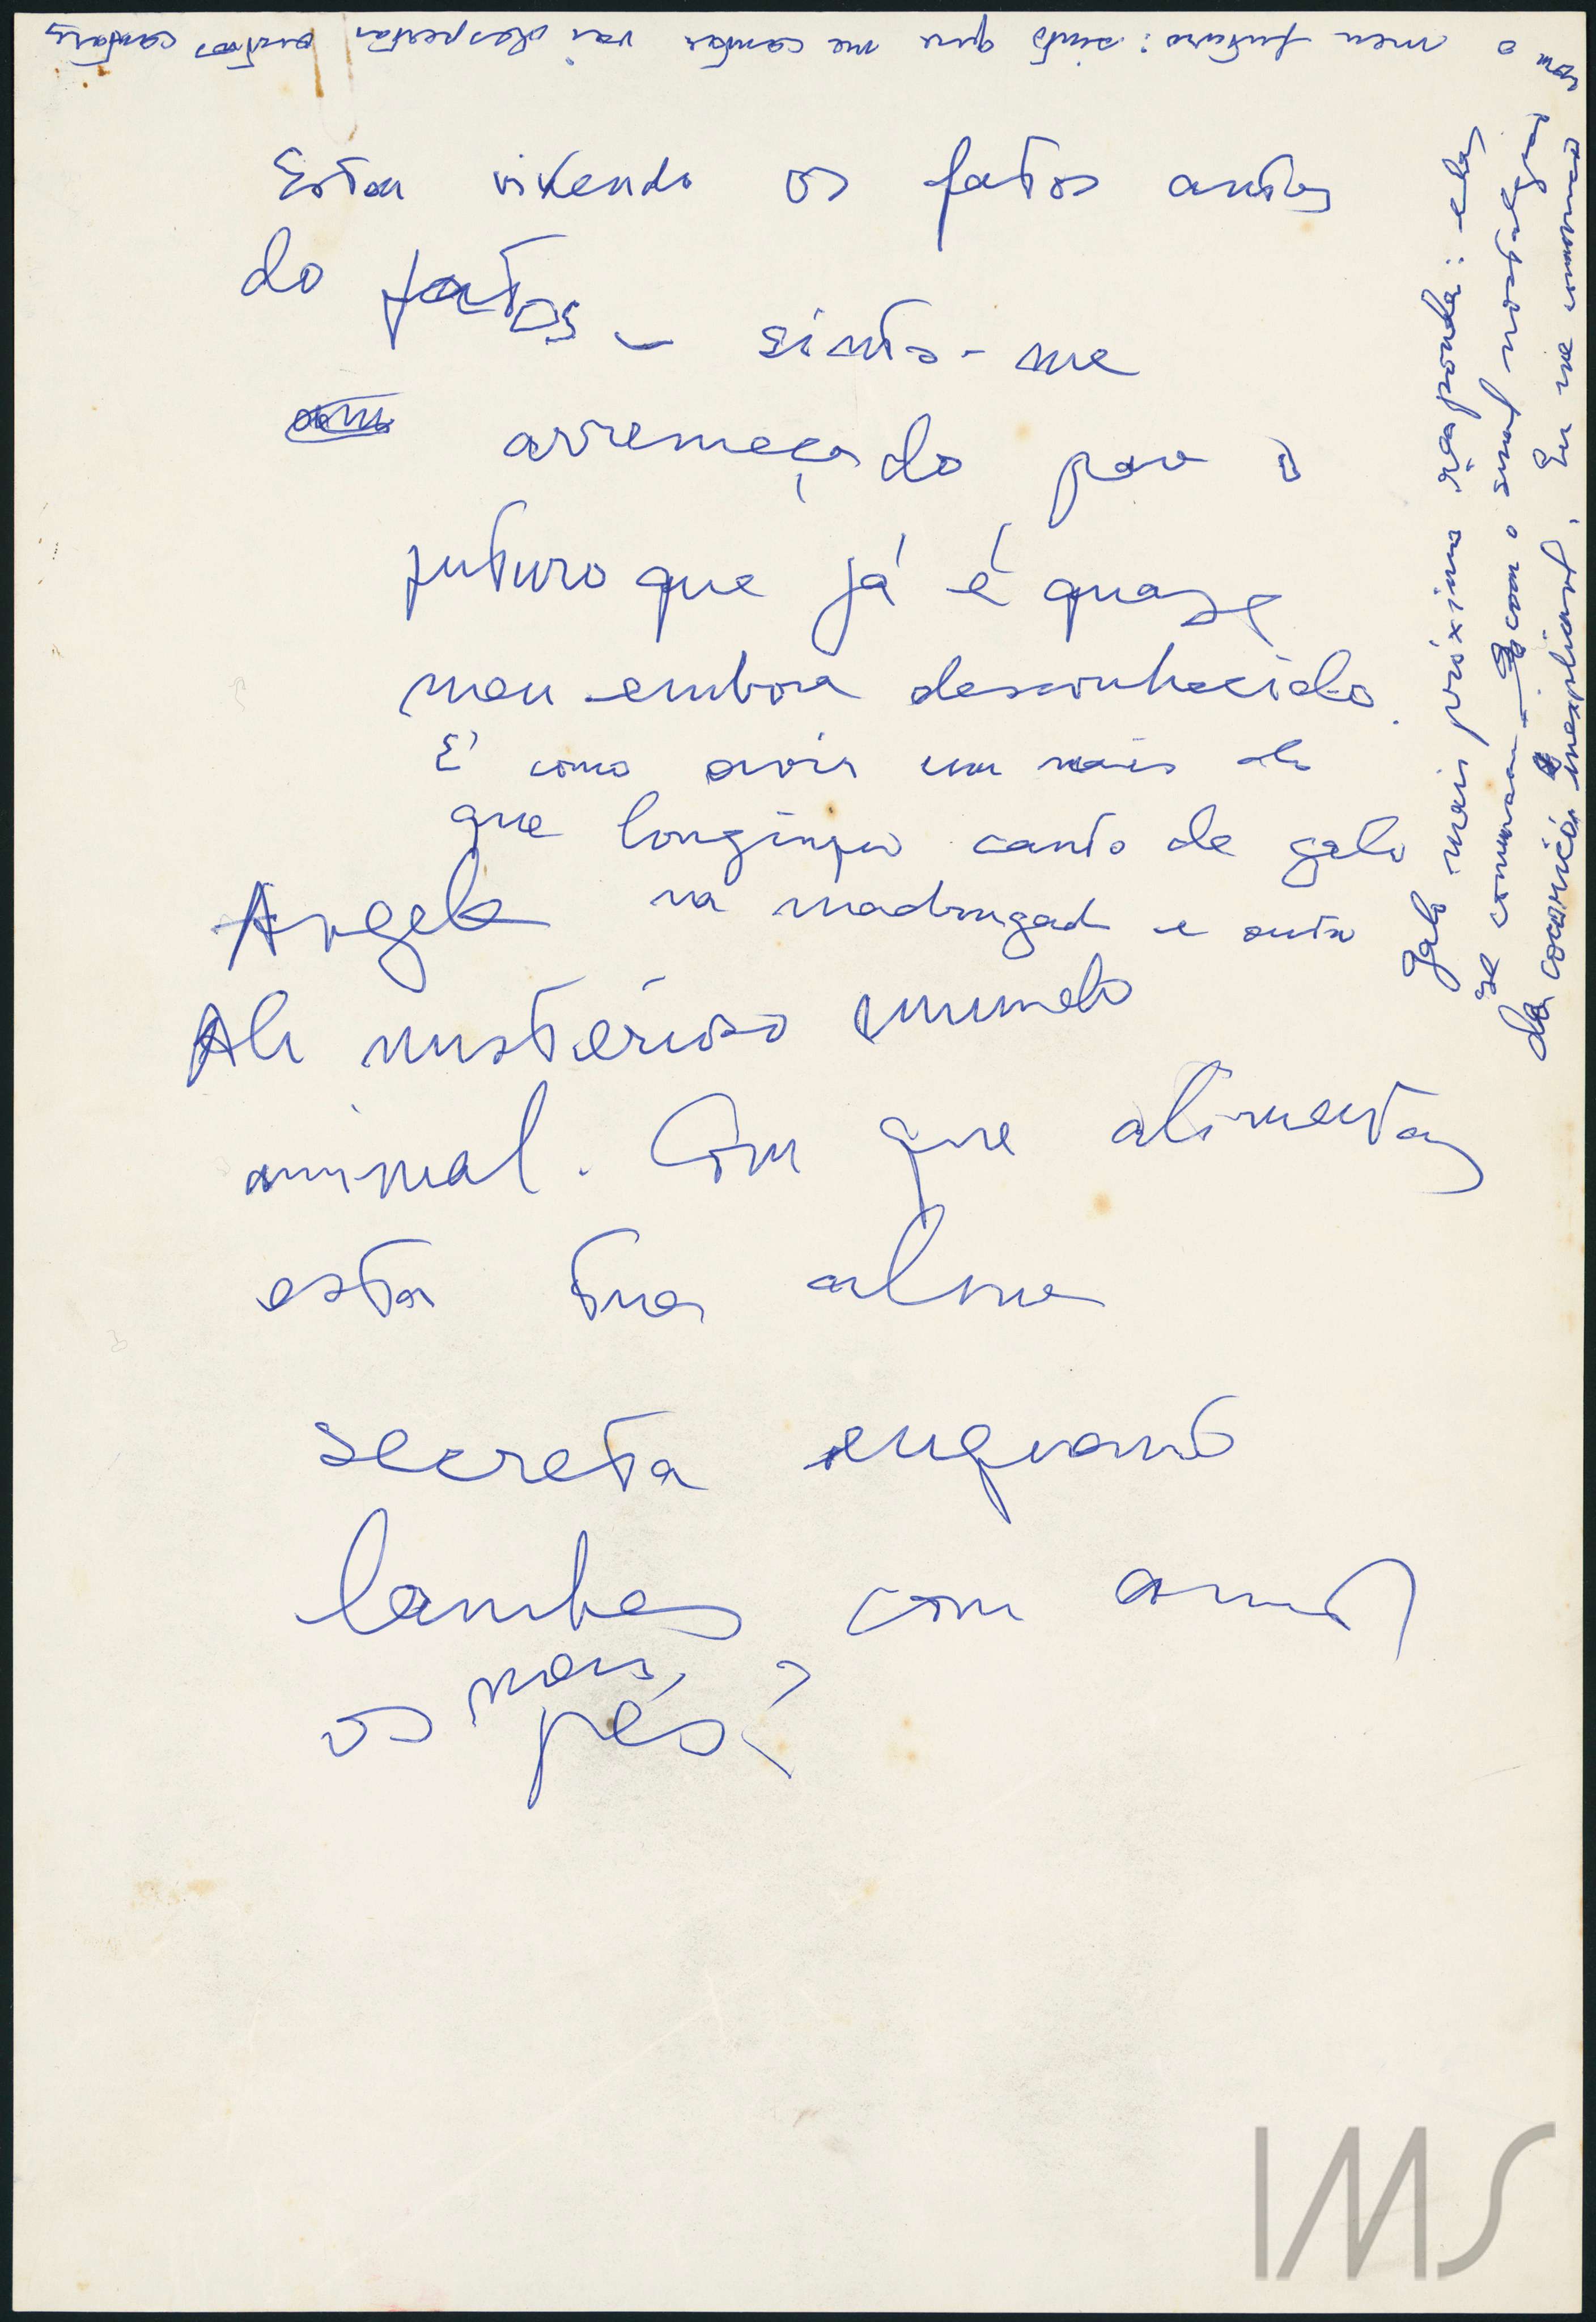 Estou vivendo os fatos antes
do fatos – sinto-me
arremeçado para o
futuro que já é quase
meu embora desconhecido.
É como ouvir um mais do
que longínquo canto de galo
na madrugada e outro
galo mais próximo responda: eles
se comunicam – com o sinal nostalgico
do cocoricó inexplicavel. Eu me comunico
com o meu futuro: sinto que me cantar vai despertar outros cantares
Angela
Ah misterioso mundo
animal. Com que alimentas
esta tua alma
secreta enquanto
lambes com amor
os meus pés?
IMS